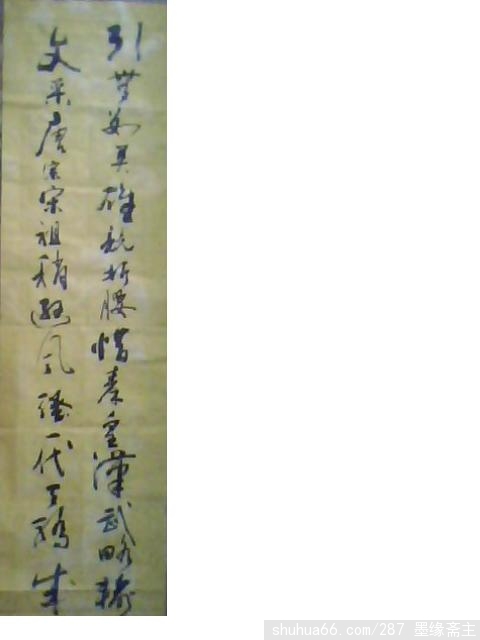 引無數英雄競折腰惜秦皇漢武略輸
文采唐宗宋祖稍遜風騷一代天驕成
shuhua66.com/287 墨缘斋主